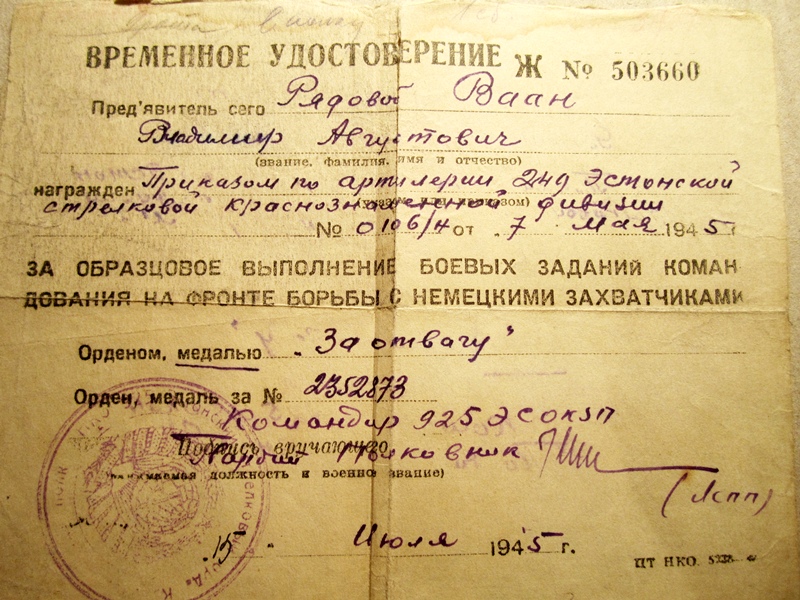 ВРЕМЕННОЕ УДОСТОВЕРЕНИЕ Ж № 503660
Пред'явитель сего Рядовой Ваан
Владимир Августович
(звание, фамилия, имя и отчество)
награжден Приказом по артилерии 249 Эстонской
стрелковой Краснознаменной дивизии
№ 0106/н от "7" Мая 1945 г
ЗА ОБРАЗЦОВОЕ ВЫПОЛНЕНИЕ БОЕВЫХ ЗАДАНИЙ КОМАН
ДОВАНИЯ НА ФРОНТЕ БОРЬБЫ С НЕМЕЦКИМИ ЗАХВАТЧИКАМИ
Орденом, медалью "За отвагу"
Орден, медаль за № 2352873
Командир 925 ЭСОКЗП
Подпись вручающего
Гвардии Полковник
(занимаемая должность и военное звание)
"15" Июля 1945 г.
ПТ НКО